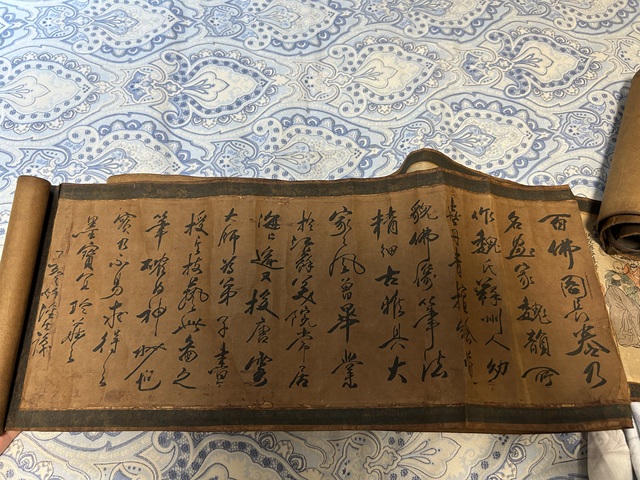 百佛圖長卷乃
名画家魏韻所
作魏氏蘇州人幼
喜丹青擅
佛像筆法
精細古雅具大
家之風曾畢業
於江蘇美院常居
海上遂又投唐雲
大師為弟子畫
授與技藝此卷之
筆確白神妙也
實乃不易求得之
墨寶宜珍藏之